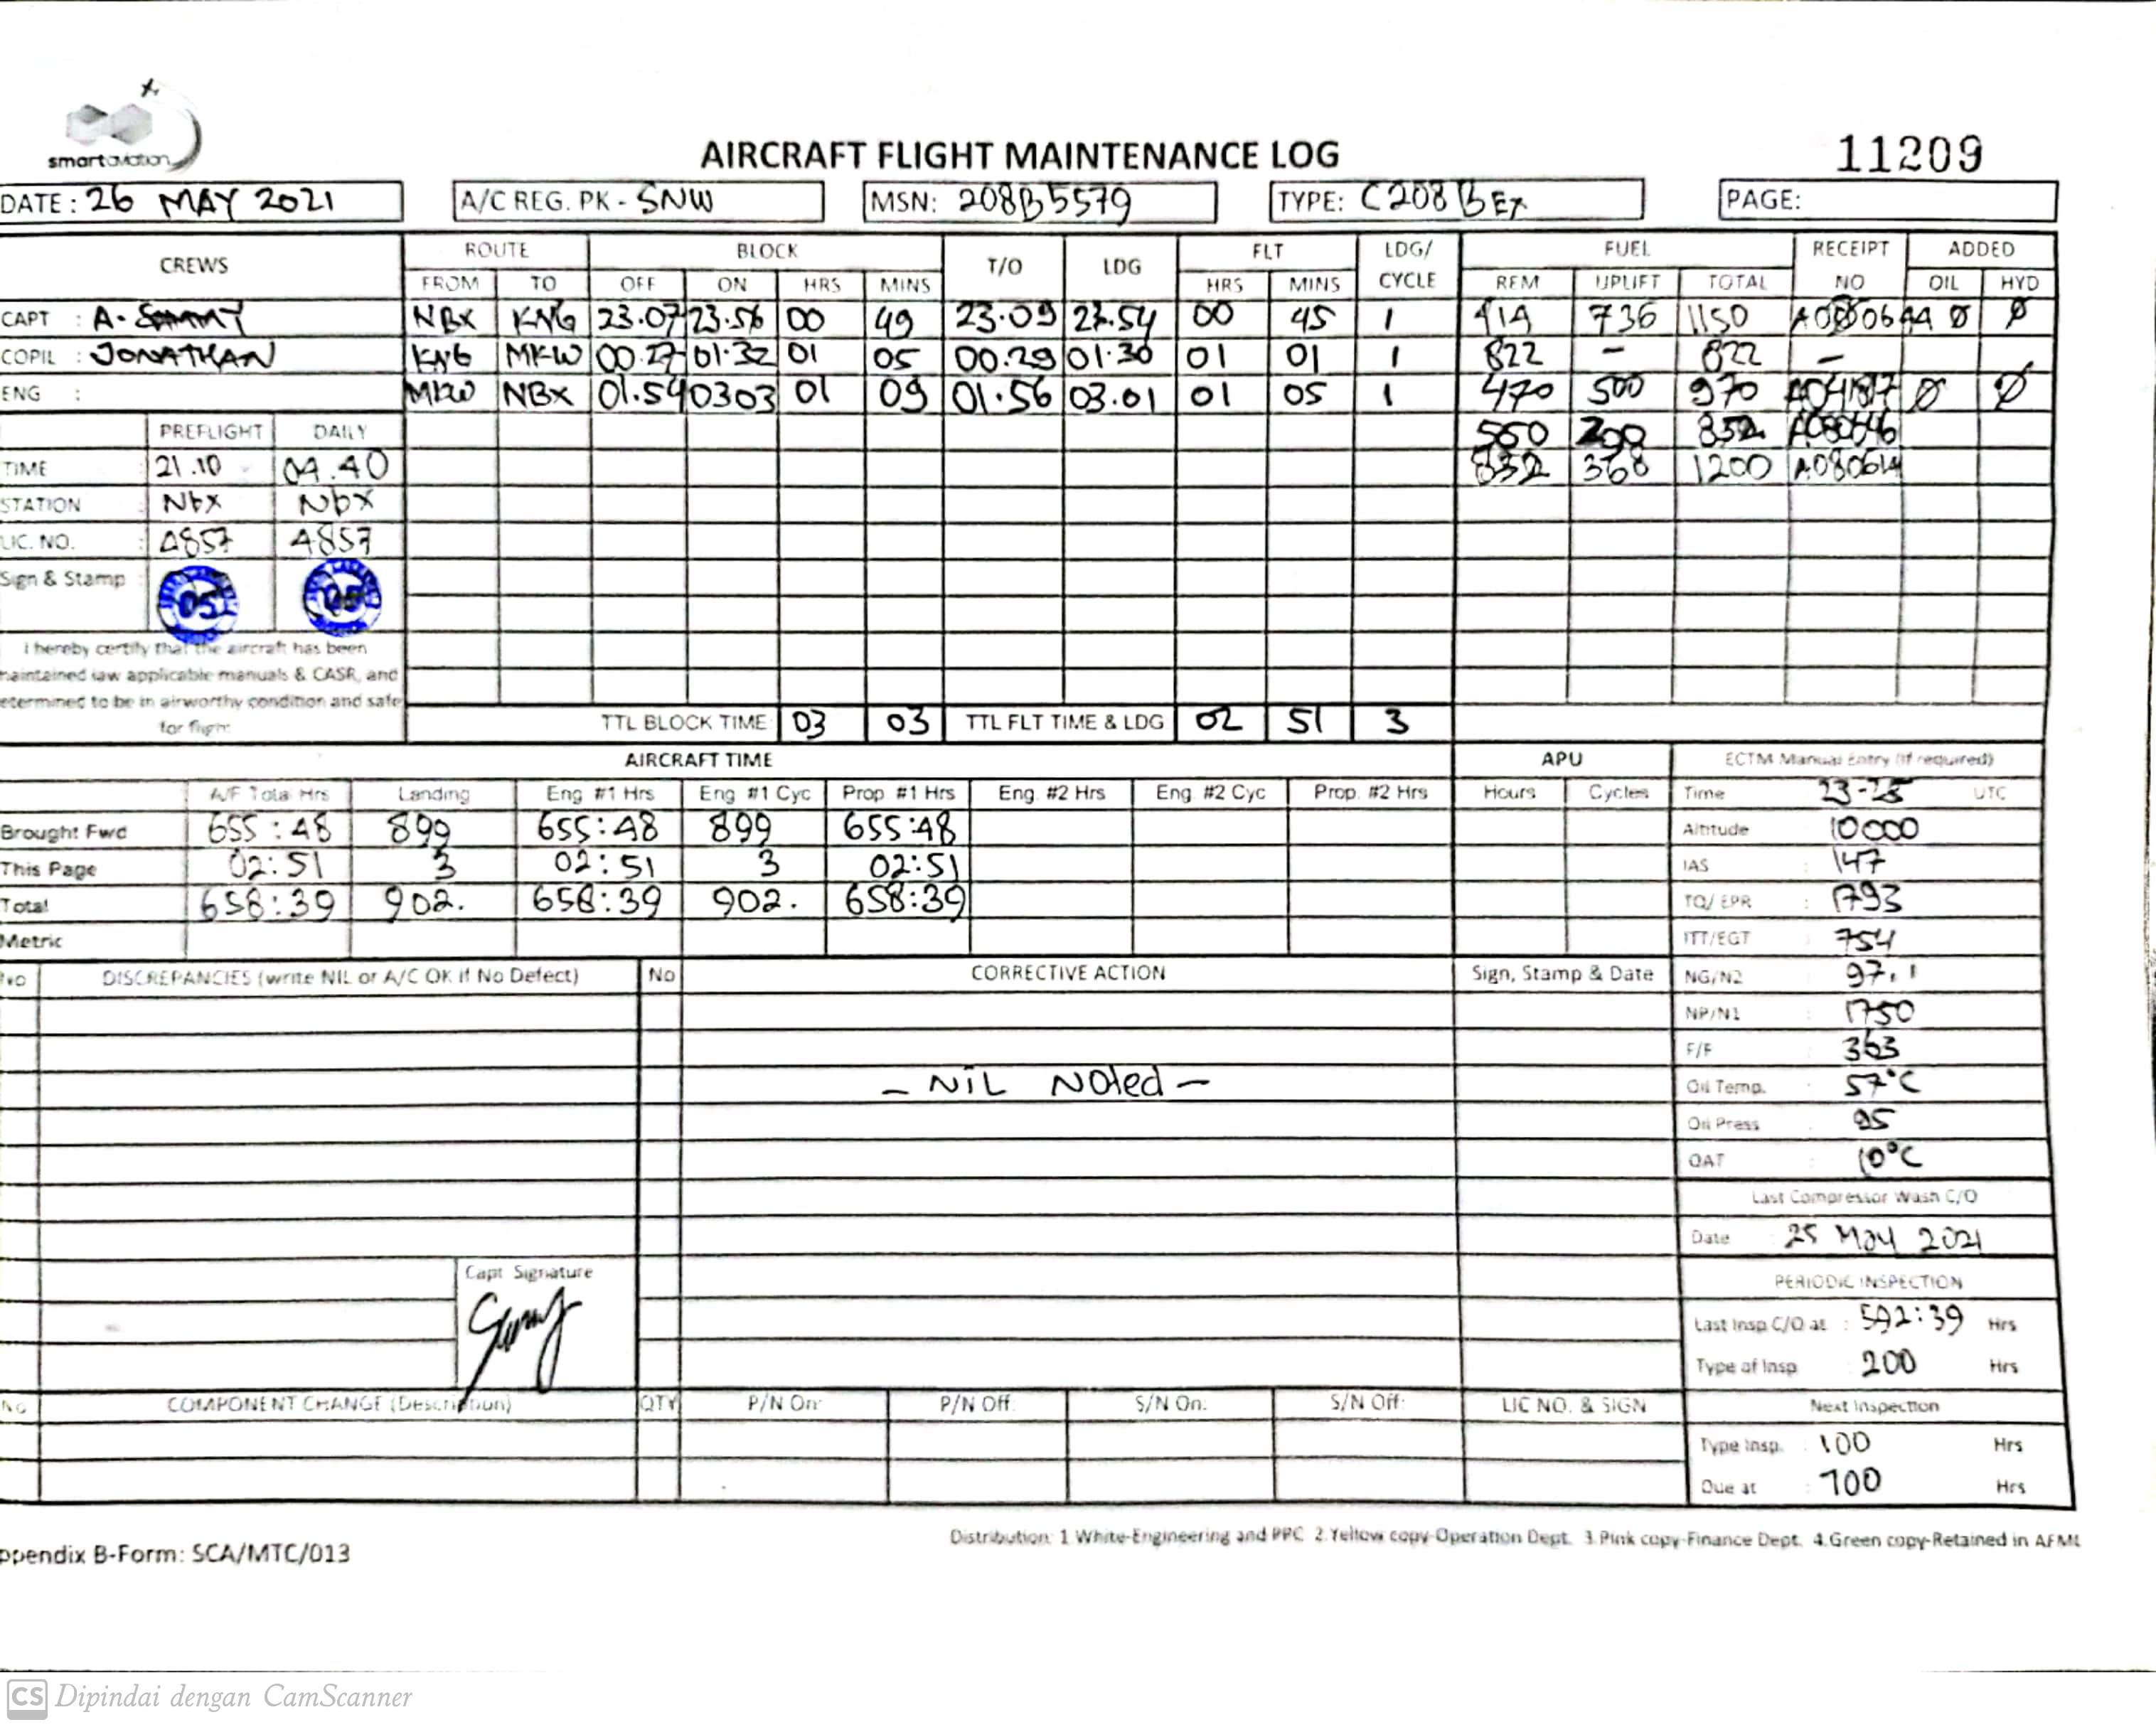 smartaviation
AIRCRAFT FLIGHT MAINTENANCE LOG 11209
DATE: 26 MAY 2021 A/C REG. PK - SNW MSN: 208B5579 TYPE: C208B EX PAGE:
CREWS ROUTE BLOCK T/O LDG FLT LDG/ CYCLE FUEL RECEIPT NO ADDED
FROM TO OFF ON HRS MINS HRS MINS REM UPLIFT TOTAL OIL HYD
CAPT : A. SAMMY NBX KNG 23.07 23.56 00 49 23.09 23.54 00 45 1 414 736 1150 Ø Ø
COPIL : JONATHAN KNG MKW 00.27 01.32 01 05 00.29 01.30 01 01 1 822 – 822 –
ENG : MKW NBX 01.54 0303 01 09 01.56 03.01 01 05 1 470 500 970 Ø Ø
PREFLIGHT DAILY 832
TIME : 21.10 04.40 832 368 1200
STATION : NBX NBX
LIC. NO. : 4857 4857
Sign & Stamp : 05
I hereby certify that the aircraft has been
maintained iaw applicable manuals & CASR, and
etermined to be in airworthy condition and safe
for flight
TTL BLOCK TIME 03 03 TTL FLT TIME & LDG 02 51 3
AIRCRAFT TIME APU ECTM Manual Entry (if required)
A/F Total Hrs Landing Eng #1 Hrs Eng #1 Cyc Prop #1 Hrs Eng. #2 Hrs Eng. #2 Cyc Prop. #2 Hrs Hours Cycles Time 23-25 UTC
Brought Fwd 655:48 899 655:48 899 655:48 Altitude 10000
This Page 02:51 3 02:51 3 02:51 IAS : 147
Total 658:39 902. 658:39 902. 658:39 TQ/ EPR : 1793
Metric ITT/EGT 754
No DISCREPANCIES (write NIL or A/C OK if No Defect) No CORRECTIVE ACTION Sign, Stamp & Date NG/N2 97.1
NP/N1 : 1750
F/F : 363
– NIL Noted – Oil Temp. : 57°C
Oil Press : 95
OAT : 10°C
Last Compressor Wash C/O
Date : 25 May 2021
Capt Signature
PERIODIC INSPECTION
Last Insp C/O at : 592:39 Hrs
Type of Insp 200 Hrs
No COMPONENT CHANGE (Description) QTY P/N On: P/N Off: S/N On: S/N Off: LIC NO. & SIGN Next Inspection
Type Insp. : 100 Hrs
Due at : 700 Hrs
Distribution: 1.White-Engineering and PPC 2.Yellow copy-Operation Dept. 3.Pink copy-Finance Dept. 4.Green copy-Retained in AFML
ppendix B-Form: SCA/MTC/013
CS Dipindai dengan CamScanner